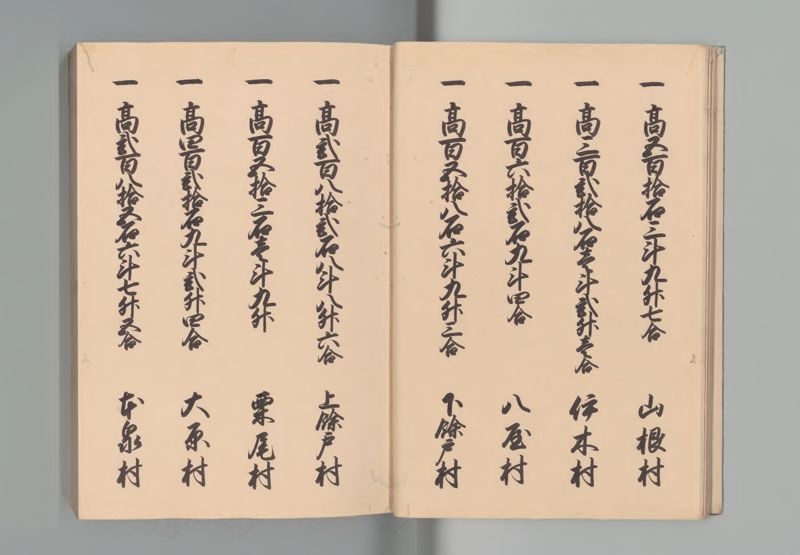 一 高五百拾石三斗九升七合 山根村
一 高三百弐拾八石壱斗弐升壱合 伊木村
一 高百六拾弐石九斗四合 八屋村
一 高百五拾八石六斗九升三合 下餘戸村
一 高弐百八拾弐石八斗八升六合 上餘戸村
一 高百五拾三石壱斗九升 栗尾村
一 高四百弐拾石九斗弐升四合 大原村
一 高弐百八拾五石六斗七升五合 本泉村